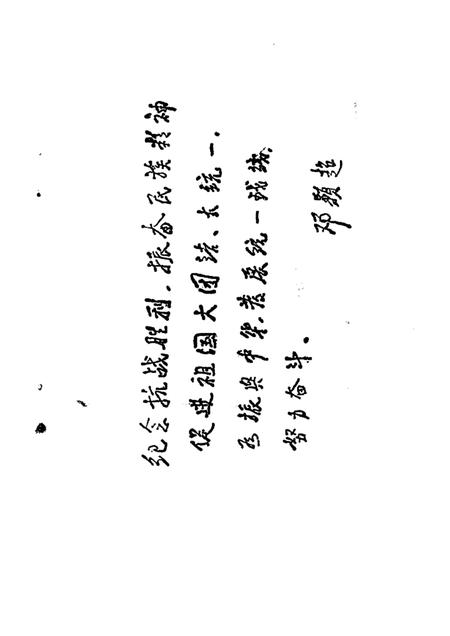 纪念抗战胜利，振奋民族精神
促进祖国大团结、大统一，
为振兴中华，发展统一战线，
努力奋斗。
邓颖超